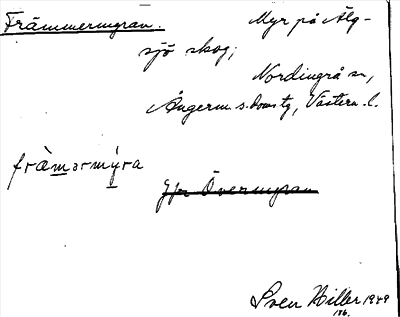 Främmermyran. Myr på Älg-
sjö skog;
Nordingrå sn,
Ångerm. s. domstg, Västern. l.
fràmərmýra
Jfr Övermyran
Sven Hiller 1949